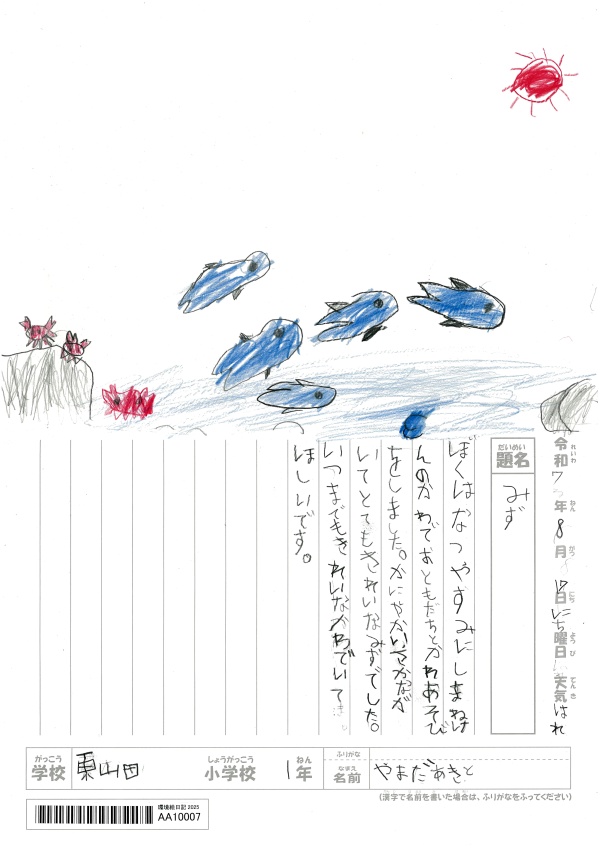 令和7年8月17日にち曜日天気はれ
れいわ ねん がつ にち ようび てんき
題名 みず
だいめい
ぼくはなつやすみにしまねけ
んのかわでおともだちとかわあそび
をしました。かにやかいやさかなが
いてとてもきれいなみずでした。
いつまでもきれいなかわでいて
ほしいです。
がっこう しょうがっこう ねん ふりがな
学校 東山田 小学校 1年 名前 やまだあきと
なまえ
(漢字で名前を書いた場合は、ふりがなをふってください)
環境絵日記 2025
AA10007